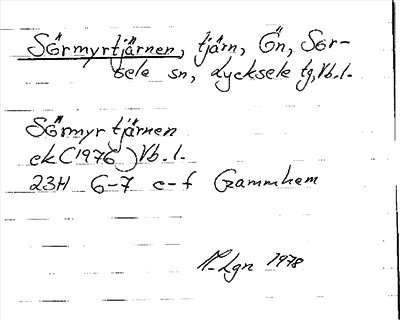 Sörmyrtjärnen, tjärn, Ön, Sor-
sele sn, Lycksele tg, Vb. l.
Sörmyrtjärnen
ek (1976) Vb. l.
23H 6-7 e-f Gammhem
M-Lgn 1978